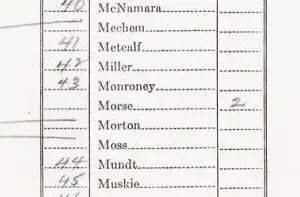 40 McNamara
Mechem
41 Metcalf
42 Miller
43 Monroney
Morse 2
Morton
Moss
44 Mundt
45 Muskie